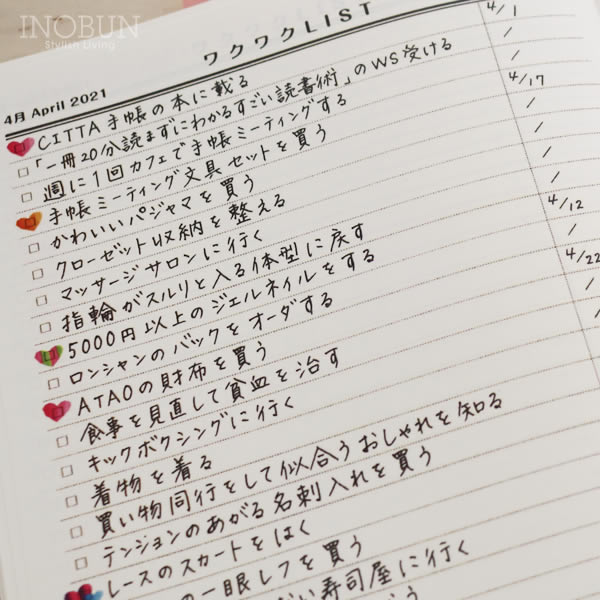 INOBUN
Stylish Living
ワクワクLIST
4月 April 2021
CITTA手帳の本に載る 4/1
「一冊20分読まずにわかるすごい読書術」のWS受ける /
週に1回カフェで手帳ミーティングする 4/17
手帳ミーティング文具セットを買う /
かわいいパジャマを買う /
クローゼット収納を整える /
マッサージサロンに行く /
指輪がスルリと入る体型に戻す 4/12
5000円以上のジェルネイルをする /
ロンシャンのバックをオーダする 4/22
ATAOの財布を買う /
食事を見直して貧血を治す /
キックボクシングに行く
着物を着る
買い物同行をして似合うおしゃれを知る
テンションのあがる名刺入れを買う
レースのスカートをはく
の一眼レフを買う
い寿司屋に行く